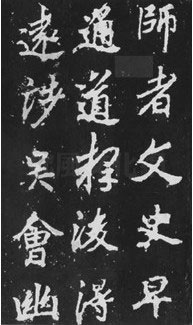 師者文史早
通道釋浚得
遠涉吳會幽